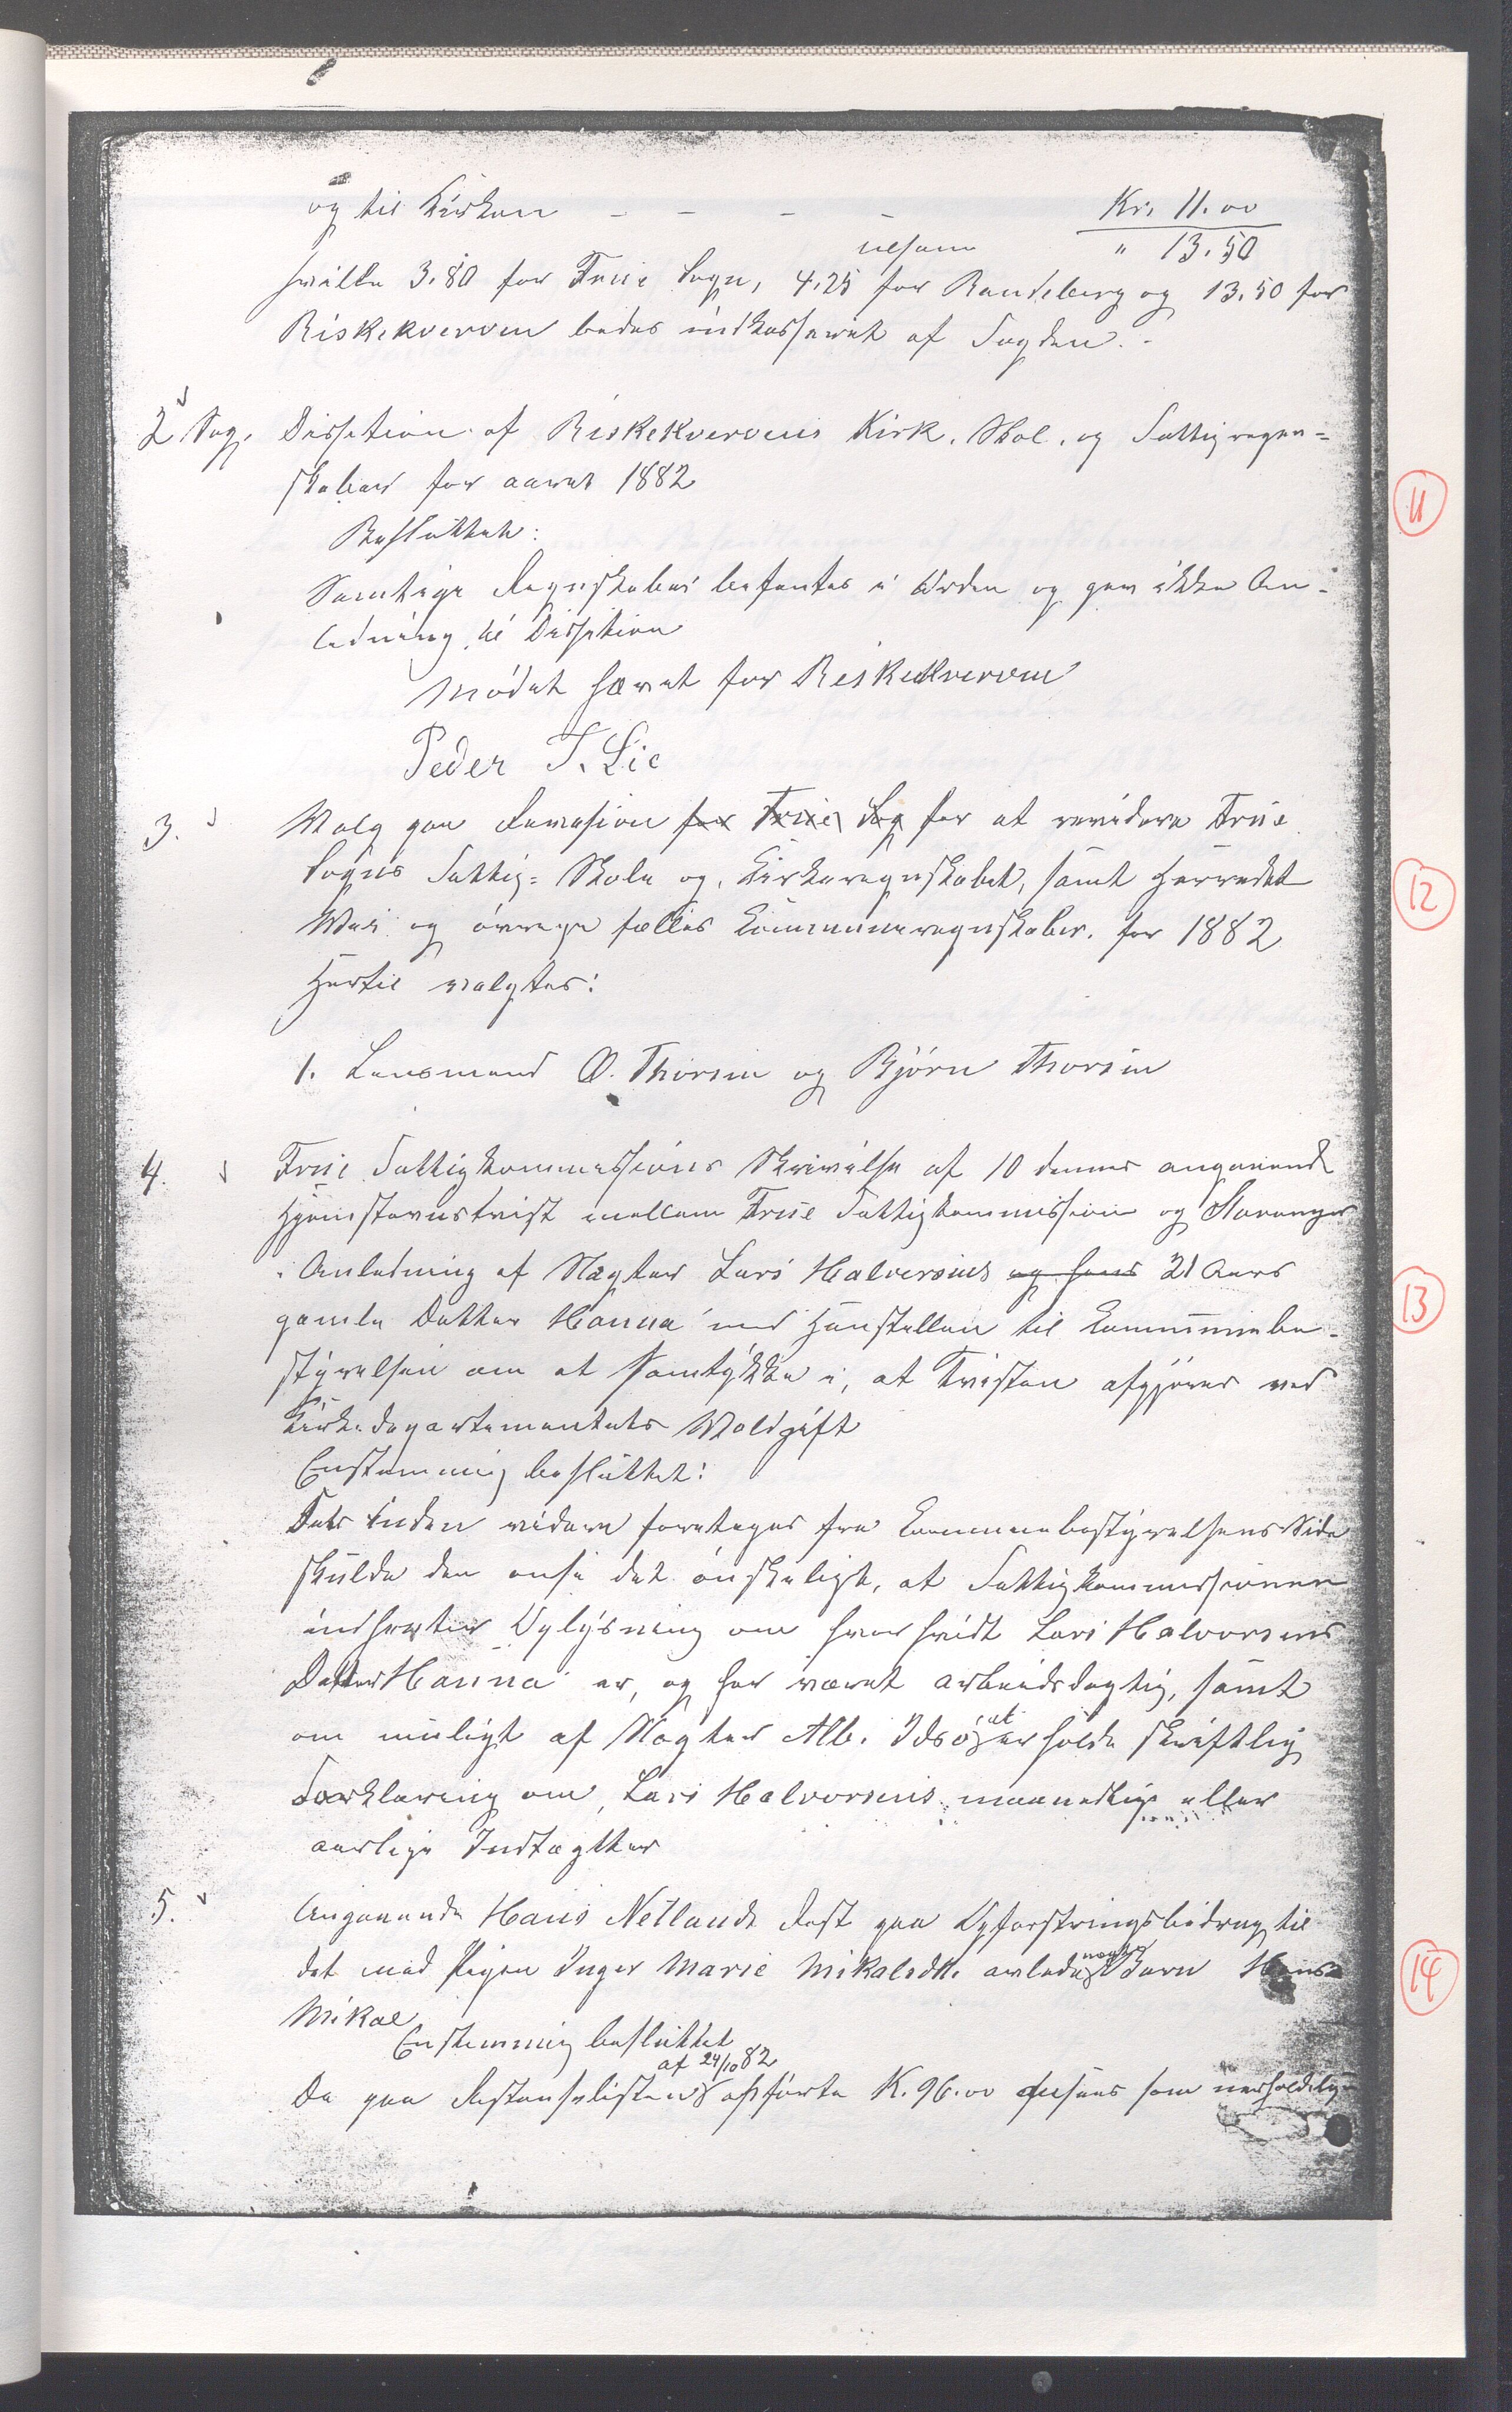 og til Kirken - - - - Kr. 11.00
tilsam " 13.50
hvilke 3.80 for Frue Sogn, 4.25 for Randeberg og 13.50 for
Riskekverven bedes indkasseret af Fogden.-
2 Sag. Dissition af Riskekvervens Kirk. Skol. og Fattigregn=
skaber for aaret 1882
Besluttet:
Samtlige Regnskaber befantes i Orden og gav ikke An-
ledning til Dissition
Mødet hævet for Riskekverven
Peder T. Lie
3. Valg paa Revision for Frue Sog for at revidere Frue
Sogns Fattig= Skole og, Kirkeregnskabet, samt Herredet
Vei og øvrige fælles Kommuneregnskaber. for 1882
Hertil valgtes:
1. Lensmand O. Thorsen og Bjørn Thorsen
4. Frue Fattigkommissions Skrivelse af 10 dennes angaaende
Hjemstavnstvist mellem Frue Fattigkommission og Stavanger
i Anledning af Slagter Lars Halversens og hans 21 Aars
gamle Datter Hanna med Henstillen til Kommunebe-
styrelsen om at samtykke i, at Tvisten afgjøres ved
Kirkedepartementets Voldgift
Enstemmig besluttet:
Før inden videre foretages fra Kommunebestyrelsens Side
skulde den anse det ønskeligt, at Fattigkommissionen
indhenter Oplysning om hvorvidt Lars Halvorsens
Datter Hanna er, og har været arbeidsdygtig, samt
om muligt af Slagter Alb. Idsø at erholde skriftlig
Forklaring om, Lars Halvorsens maanedlige eller
aarlige Indtægter
5. Angaaende Hans Netlands Rest paa Opfostringsbidrag til
det med Pigen Inger Marie Mikalsdtr. avlede uægte Barn Hans
Mikal
Enstemmig besluttet
af 24/10 82
De paa Restanselisten opførte K. 96.00 ansees som uerholdelige
11
12
13
14